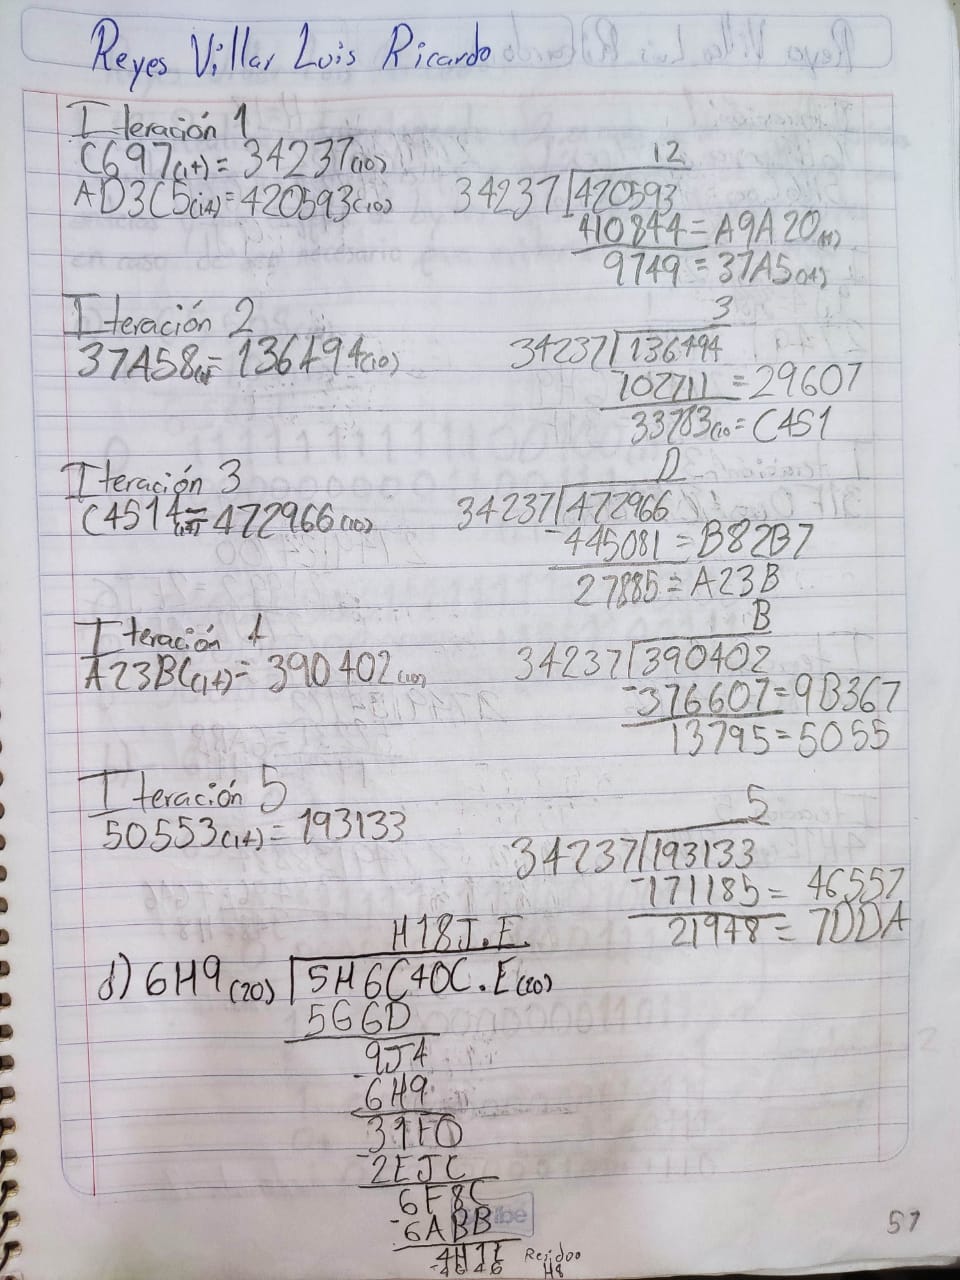 Reyes Villar Luis Ricardo
Iteración 1
C697(14)= 34237(10)
AD3C5(14)=420593(10)
12
34237 420593
410844=A9A20(14)
9749=37A5(14)
Iteración 2
37A58(14)=136494(10)
3
34237 136494
102711=29607
33783(10=C451
Iteración 3
C4514(14)=472966(10)
D
34237 472966
-445081=B82B7
27885=A23B
Iteración 4
A23BC(14)=390402(10)
B
34237 390402
-376607=9B367
13795=5055
Iteración 5
50553(14)=193133
5
34237 193133
-171185=46557
21948=7DDA
H18J.E
d) 6H9(20) 5H6C40C.E(20)
5GGD
9J4
-6H9
31F0
-2EJC
6F8C
-6ABB
4H1E
-4646
Residuo
H8
51